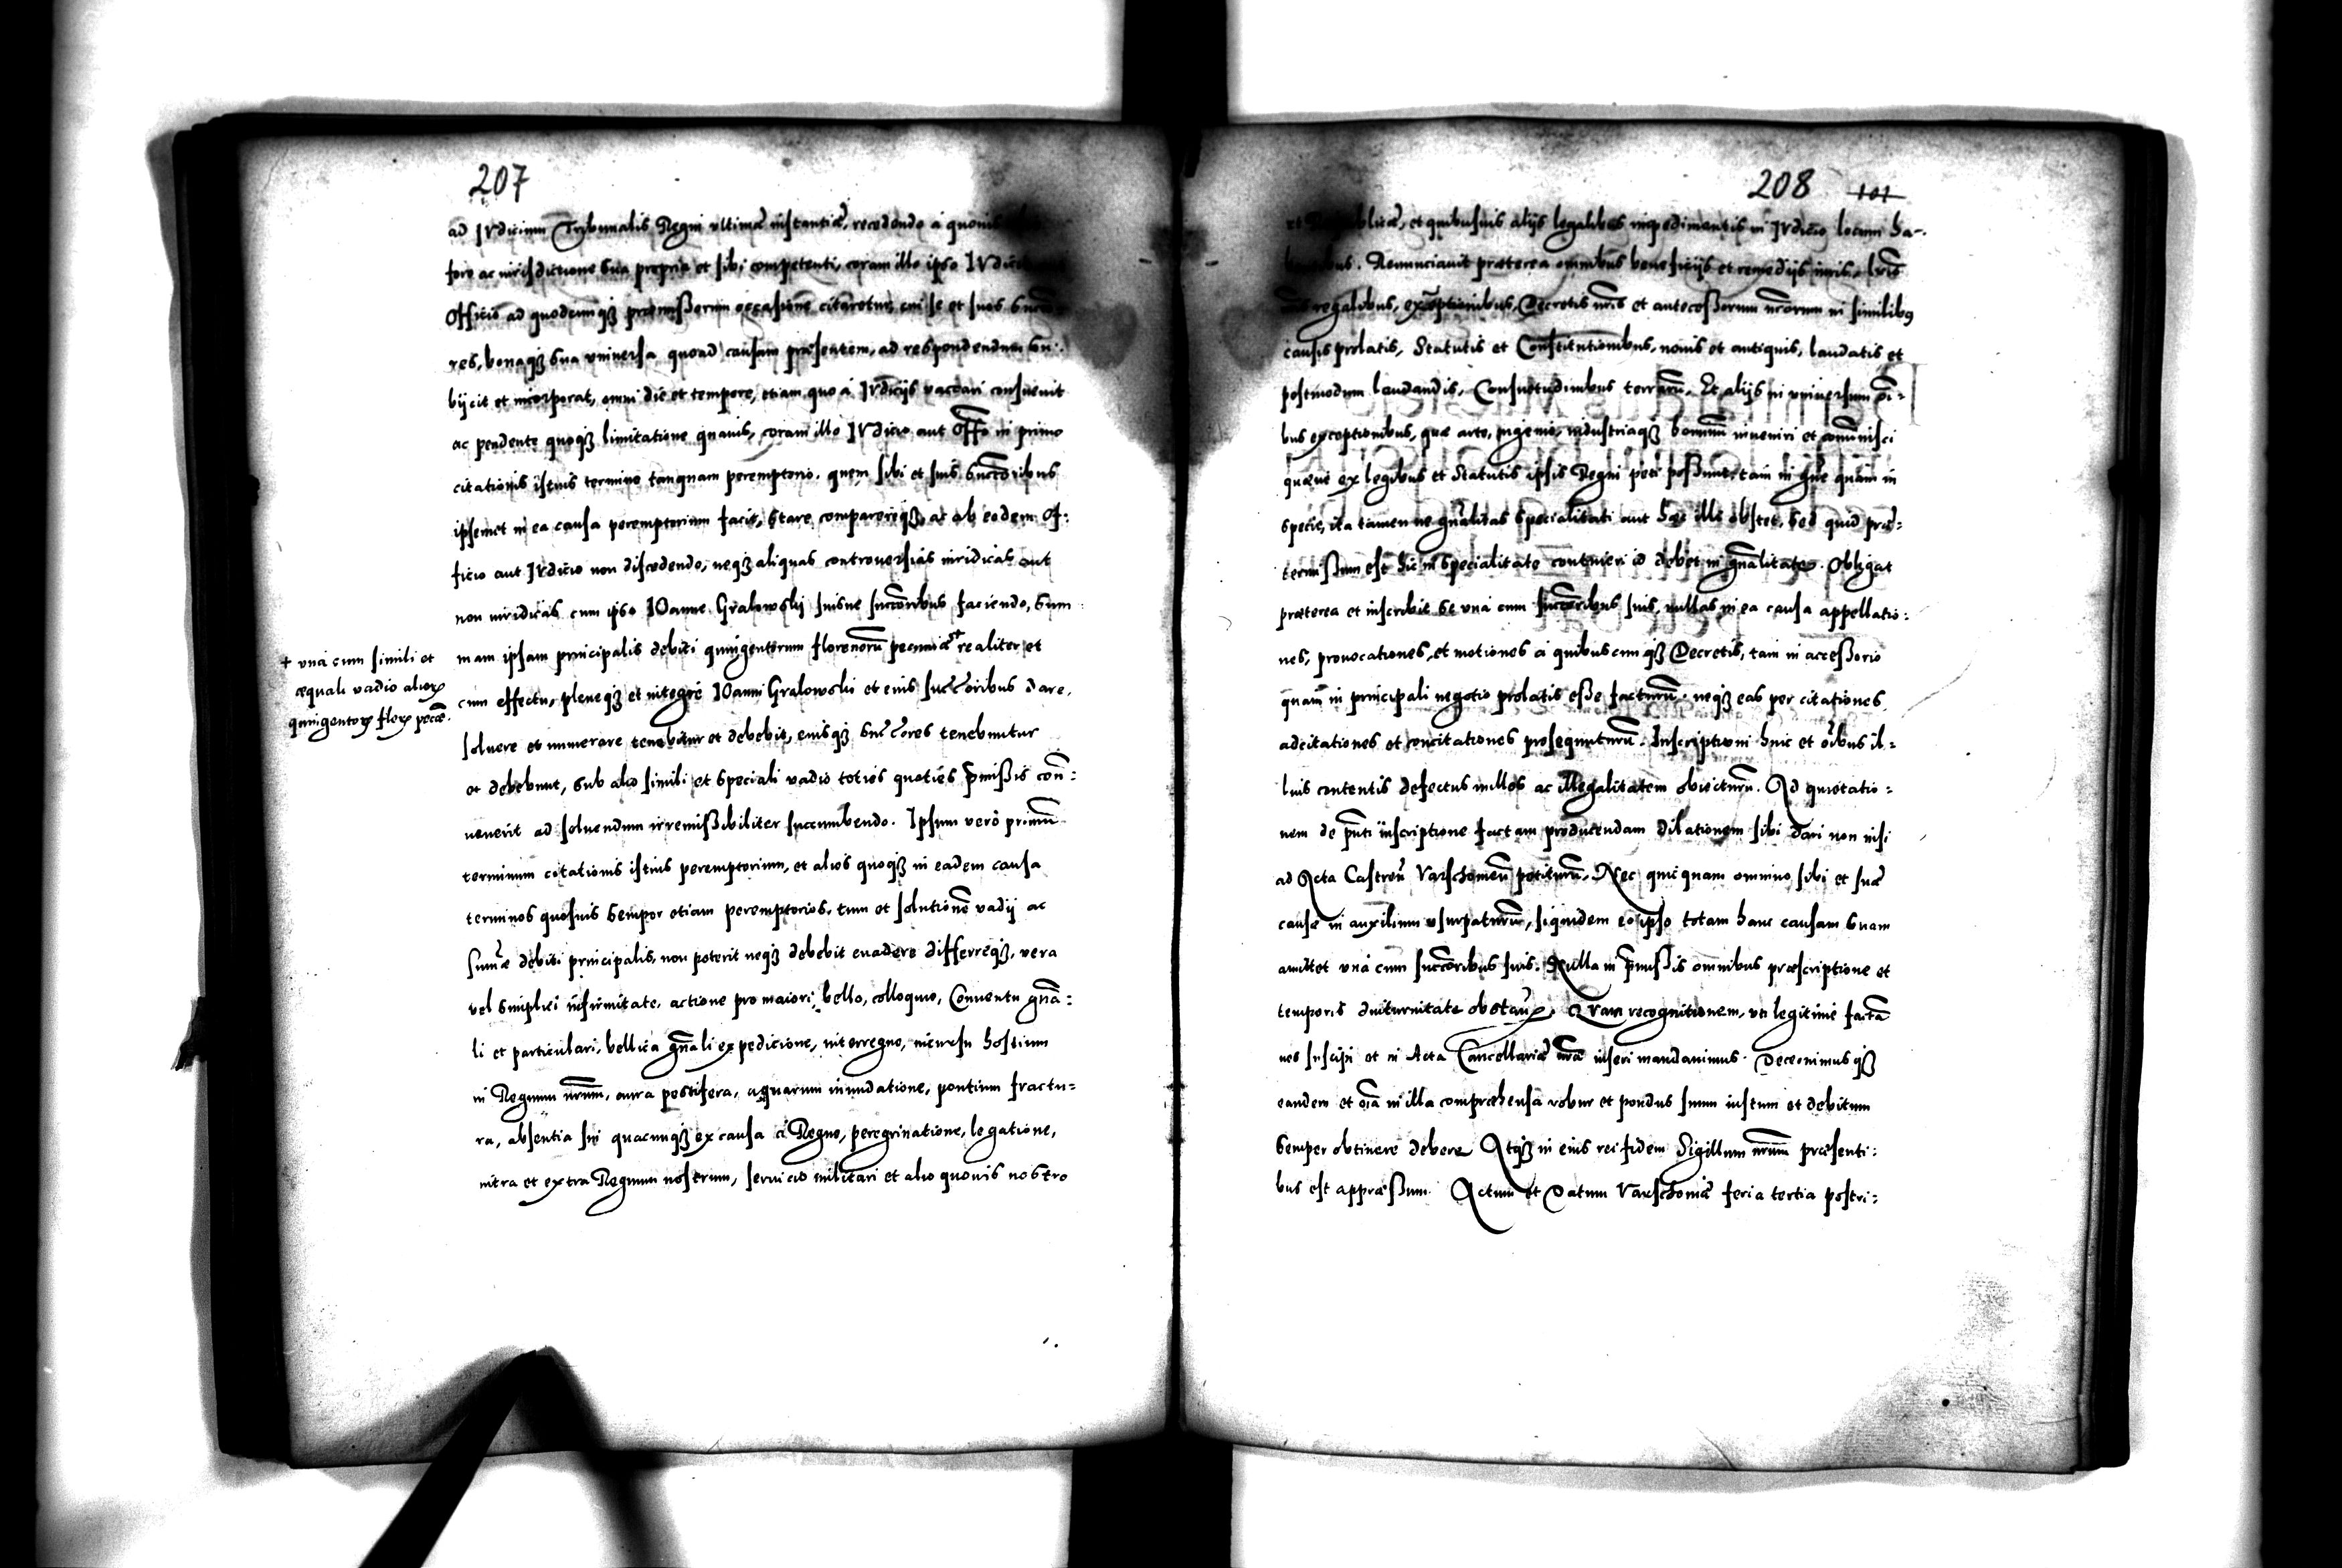 207
ad IVdicium Tribunalis Regni vltimæ instantiæ, recedendo à quouis
foro ac iurisdictione sua propria et sibi competenti, coram illo ipso IVdicio
Officio ad quodcumq; præmissorum occasione citaretur, cui se et suos succō
res, bonaq; sua vniuersa quoad causam præsentem, ad respondendum su:
bijcit et incorporat, omni die et tempore, etiam quo à IVdicijs vaccari consueuit
ac pendente quoq; limitatione quauis, coram illo IVdicio aut Offō in primo
citationis istius termino tanquam peremptorio, quem sibi et suis succōribus
ipsemet in ea causa peremptorium facit, stare comparereq; ac ab eodem Of:
ficio aut IVdicio non discedendo, neq; aliquas controuersias iuridicas aut
non iuridicas cum ipso IOanne Gralowskj suisue succōribus faciendo, sum
mam ipsam principalis debiti quingentorum florenorū pecuniæ + realiter et
cum effectu, pleneq; et integrè IOanni Gralowski et eius succōribus dare,
soluere et numerare tenebitur et debebit, eiusq; succōres tenebuntur
et debebunt, sub alio simili et speciali vadio toties quoties p̄missis con:
uenerit ad soluendum irremissibiliter succumbendo. Ipsum verò primū
terminum citationis istius peremptorium, et alios quoq; in eadem causa
terminos quosuis semper etiam peremptorios, tum et solutionē vadij ac
sum̄æ debiti principalis, non poterit neq; debebit euadere differreq;, vera
vel simplici infirmitate, actione pro maiori, bello, colloquio, Conuentu gnā:
li et particulari, bellica gn̄ali expedicione, interregno, incursu hostium
in Regnum nr̄um, aura pestifera, aquarum inundatione, pontium fractu=
ra, absentia sui quacunq; ex causa à Regno, peregrinatione, legatione,
intra et extra Regnum nostrum, seruicio militari et alio quouis nostro
+ vnà cum simili et
æquali vadio aliorꝝ
quingentorꝝ florꝝ pecæ.
208 101
et blicæ, et quibusuis alijs legalibus impedimentis in IVdicio locum ha-.
. Renunciauit præterea omnibus beneficijs et remedijs iuris, lrīs
regalibus, exceptionibus, Decretis nr̄is et antecessorum nr̄orum in similibus
causis prolatis, Statutis et Constitutionibus, nouis et antiquis, laudatis et
postmodum laudandis, Consuetudinibus terrarū. Et alijs in vniuersum oī=
bus exceptionibus, quæ arte, ingenio, industriaq; hominū inueniri et com̄inisci
quæue ex legibus et Statutis ipsis Regni peti possunt, tam in gn̄e quàm in
specie, ita tamen ne gn̄alitas specialitati aut hæc illi obstet, sed quid præ:
termissum est hic in specialitate contineri id debet in gn̄alitate. Obligat
præterea et inscribit se vnà cum succōribus suis, nullas in ea causa appellatio:
nes, prouocationes, et motiones à quibuscumq; Decretis, tam in accessorio
quàm in principali negotio prolatis esse facturū, neq; eas per citationes,
adcitationes et concitationes prosequuturū. Inscriptioni huic et oībus il=
lius contentis defectus nullos ac Illegalitatem obiecturū. Ad quietatio=
nem de p̄nti inscriptione factam producendam dilationem sibi dari non nisi
ad Acta Castreñ Varschouieñ petiturū. Nec quicquam omnino sibi et suæ
causæ in auxilium vsurpaturum, siquidem eo ipso totam hanc causam suam
amittet vnà cum succōribus suis. Nulla in p̄missis omnibus præscriptione et
temporis diuturnitate obstañ. QVam recognitionem, vti legitimè factā
nos suscipi et in Acta Cancellariæ nr̄æ inseri mandauimus. Decernimusq;
eandem et oīa in illa compræhensa robur et pondus suum iustum et debitum
semper obtinere debere. Atq; in eius rei fidem Sigillum nr̄um præsenti:
bus est appræssum. Actum et Datum Varschouiæ feria tertia postri: